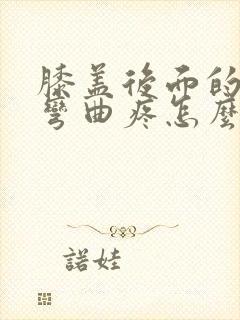 膝盖後面的
彎曲疼怎麼
諾娃